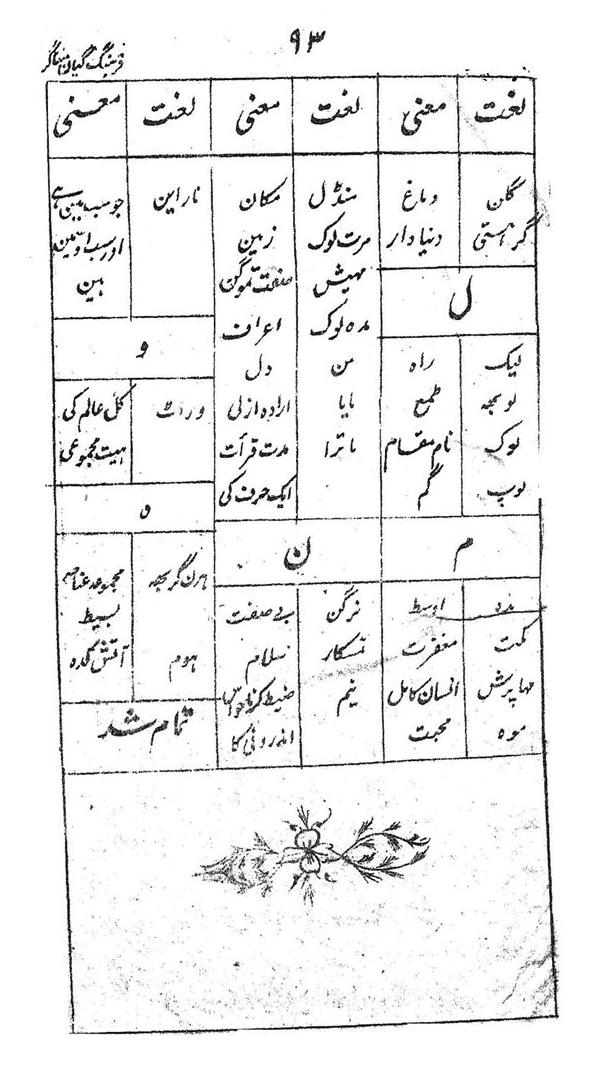 ۹۳
فرہنگ گیان مہاساگر
لغت معنی لغت معنی لغت معنی
گلن دماغ
گرہستی دنیا دار
ل
لیک راہ
لوبھہ طمع
لوک نام مقام
لوپ گم
م
مدہ اوسط
مکت مغفرت
مہاپرش انسان کامل
موہ محبت
منڈل مکان
مرت لوک زمین
مہیش صفت تموگن
مدہ لوک اعراف
من دل
مایا ارادہ ازلی
ماترا مدت قرأت
ایک حرف کی
ن
نرگن بے صفت
نمسکار سلام
نیم ضبط کرنا حواس
اندرونی کا
نراین جو سب مین ہے
اور سب اوسمین
ہین
و
وراٹ کل عالم کی
ہیت مجموعی
ہ
ہرن گربھہ مجموعہ عناصر
بسیط
ہوم آتش کدہ
تمام شد